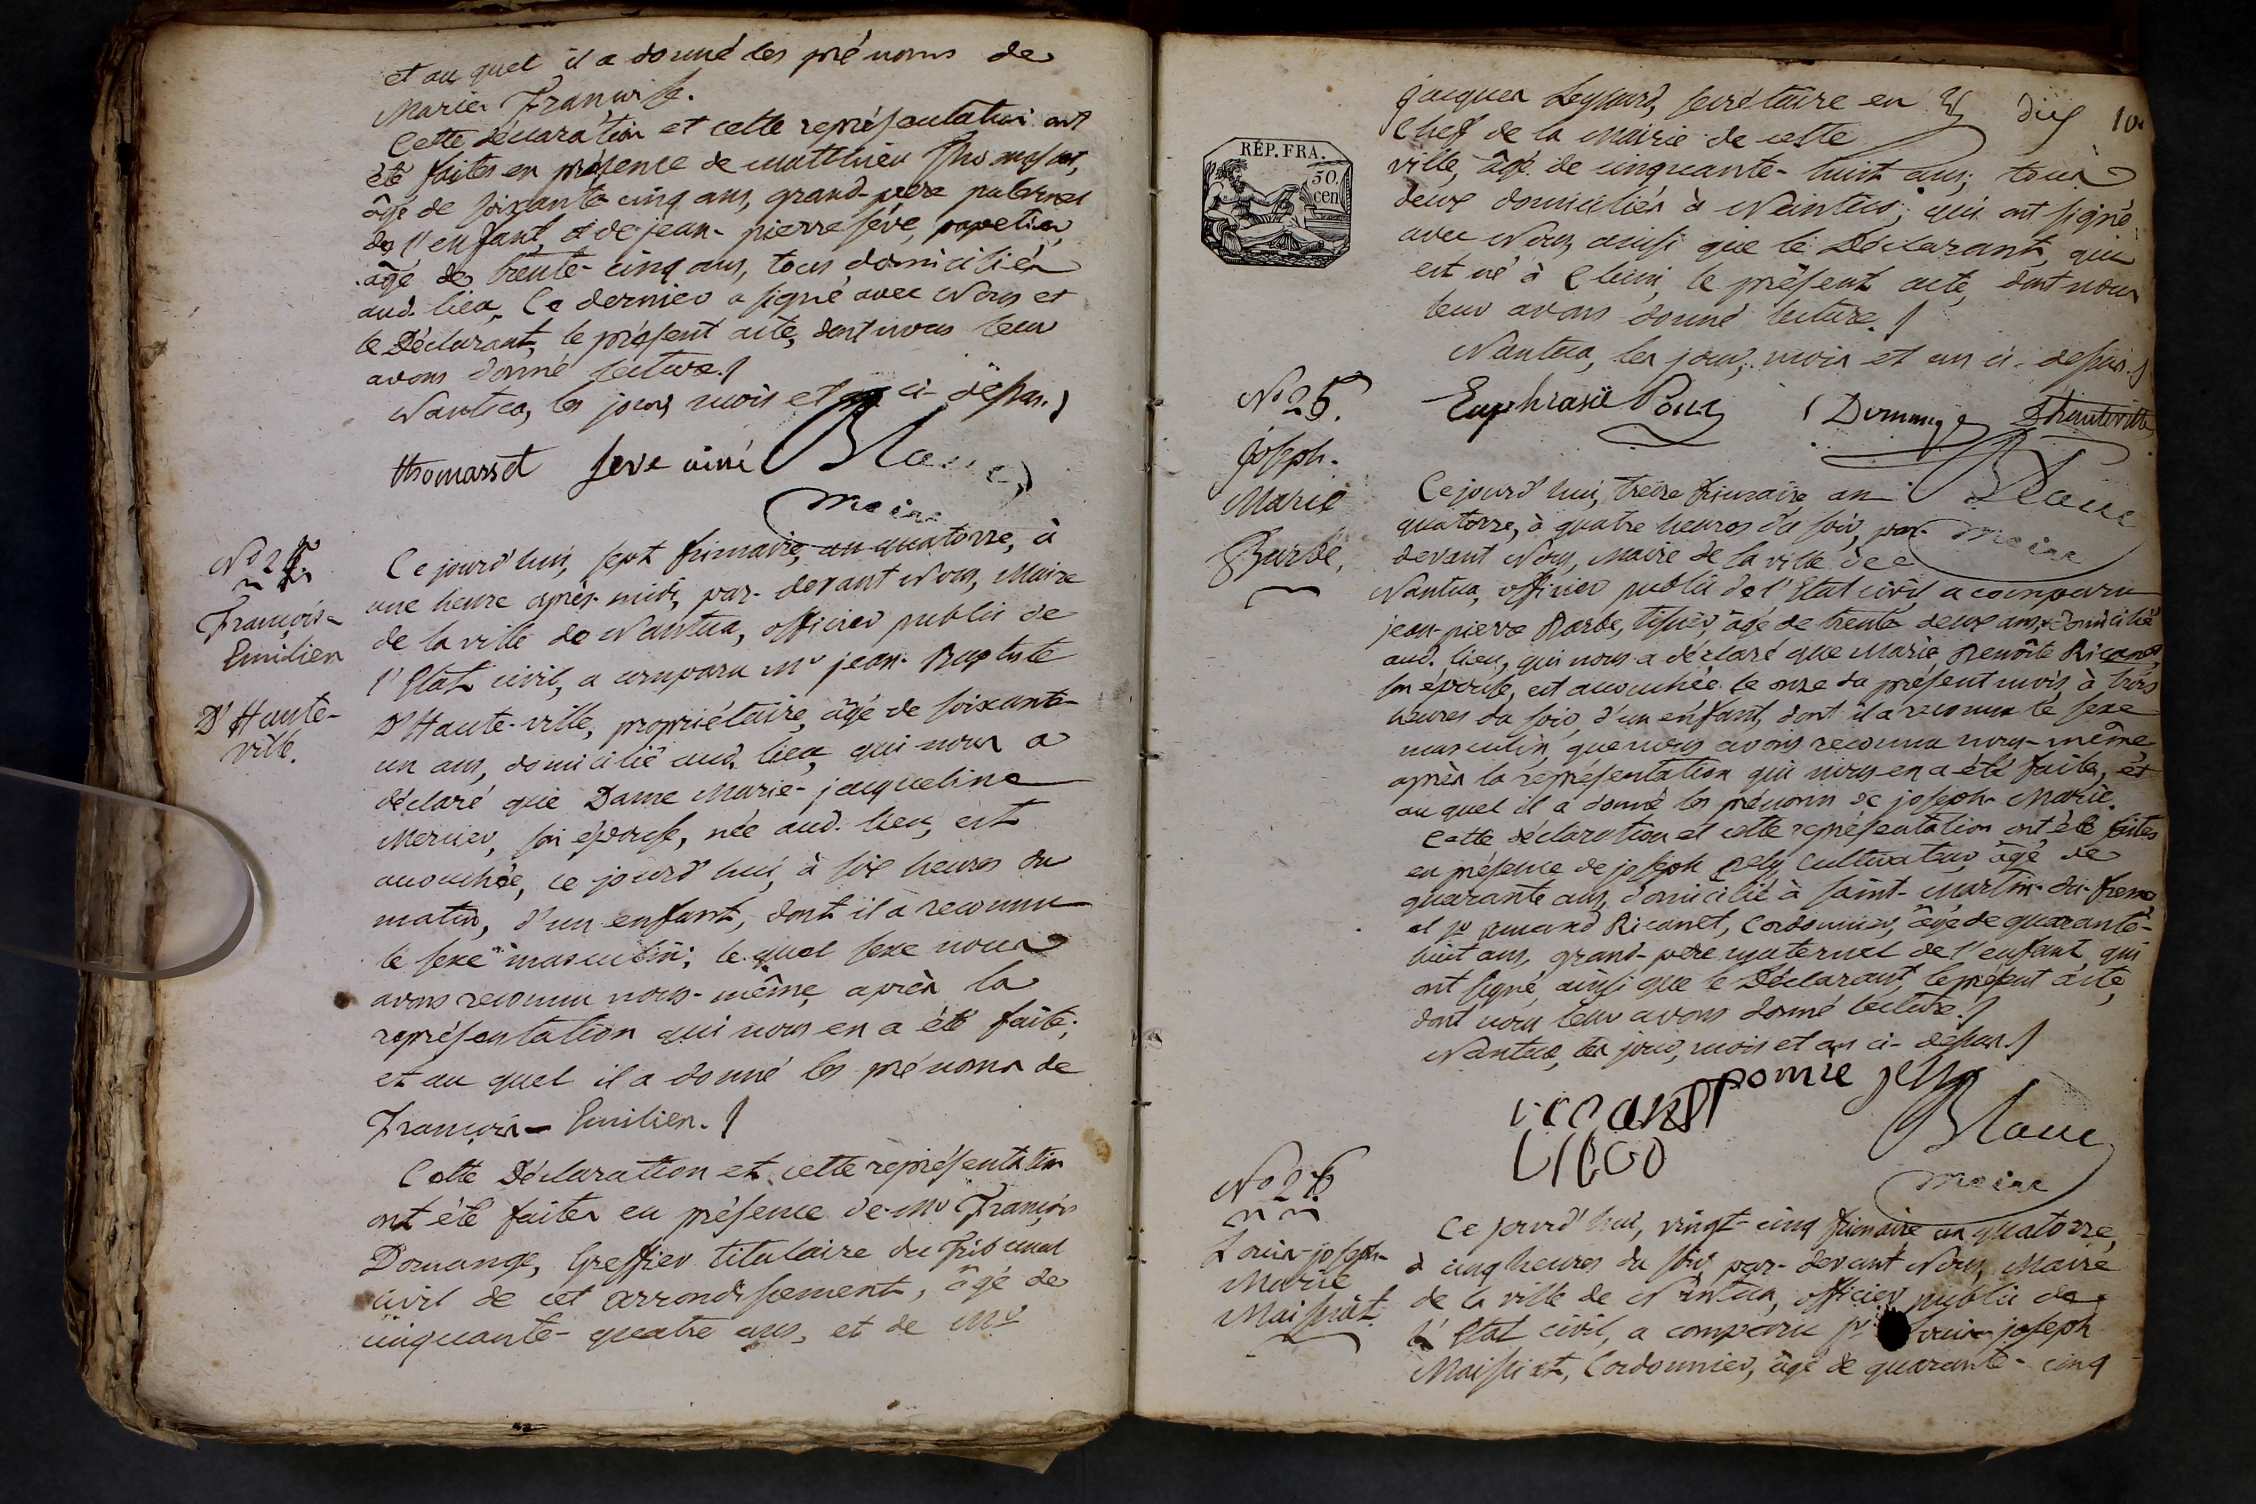 et au quel il a donné les prénoms de
Marie-Françoise.
Cette déclaration et cette représentation ont
été faites en présence de Matthieu Thomasset,
âgé de soixante-cinq ans, grand-père paternel
de l'enfant, et de jean-pierre sève, papetier,
âgé de trente-cinq ans, tous domiciliés
aud. lieu. Ce dernier a signé avec Nous et
le Déclarant, le présent acte, dont nous leur
avons donné lecture.
Nantua, les jour, mois et an ci-dessus.
thomasset seve ainé Blanc
maire
François-
Emilien
D'Haute-
ville.
Ce jourd'hui, sept frimaire, an quatorze, à
une heure après-midi, par-devant Nous, Maire
de la ville de Nantua, officier public de
l'Etat civil, a comparu Mr jean-Baptiste
D'Haute-ville, propriétaire, âgé de soixante-
un ans, domicilié aud. lieu, qui nous a
déclaré que Dame Marie-jacqueline
Mercier, son épouse, née aud. lieu, est
accouchée, ce jourd'hui, à six heures du
matin, d'un enfant, dont il a reconnu
le sexe masculin; le quel sexe nous
avons reconnu nous-même, après la
représentation qui nous en a été faite;
et au quel il a donné les prénoms de
François-Emilien.
Cette Déclaration et cette représentation
ont été faites en présence de Mr François
Domange, Greffier titulaire du Tribunal
civil de cet arrondissement, âgé de
cinquante-quatre ans, et de Mr
dix 10
jacques secrétaire en
Chef de la Mairie de cette
ville, âgé de cinquante-huit ans; tous
deux domiciliés à Nantua; qui ont signé
avec Nous, ainsi que le Déclarant, qui
est né à le présent acte, dont nous
leur avons donné lecture.
Nantua, les jour, mois et an ci-dessus.
RÉP. FRA.
50.
cen
Domange Dhauteville
Blanc
maire
No 25.
joseph-
Marie
Barbe.
Ce jourd'hui, treize frimaire, an
quatorze, à quatre heures du soir, par-
devant Nous, Maire de la ville de
Nantua, officier public de l'Etat civil, a comparu
jean-pierre Barbe, tissier, âgé de trente-deux ans, domicilié
aud. lieu, qui nous a déclaré que Marie Benoîte Ricanet,
son épouse, est accouchée le onze du présent mois, à trois
heures du soir, d'un enfant, dont il a reconnu le sexe
masculin, que nous avons reconnu nous-même,
après la représentation qui nous en a été faite, et
au quel il a donné les prénoms de joseph-Marie.
Cette déclaration et cette représentation ont été faites
en présence de joseph cultivateur, âgé de
quarante ans, domicilié à Saint-Martin-du-frene,
et Sr amand Ricanet, Cordonnier, âgé de quarante-
huit ans, grand-père maternel de l'enfant, qui
ont signé, ainsi que le Déclarant, le présent acte,
dont nous leur avons donné lecture.
Nantua, les jour, mois et an ci-dessus.
Blanc
maire
No 26
Louis-joseph-
Marie
Maissiat.
Ce jourd'hui, vingt-cinq frimaire, an quatorze,
à cinq heures du soir, par-devant Nous, Maire
de la ville de Nantua, officier public de
l'Etat civil, a comparu Sr Louis-joseph
Maissiat, Cordonnier, âgé de quarante-cinq